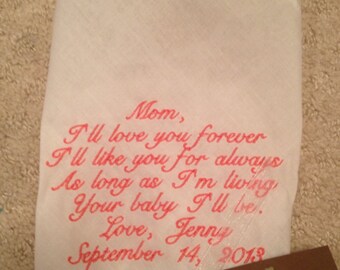 Mom,
I'll love you forever
I'll like you for always
As long as I'm living
Your baby I'll be.
Love, Jenny
September 14, 2013